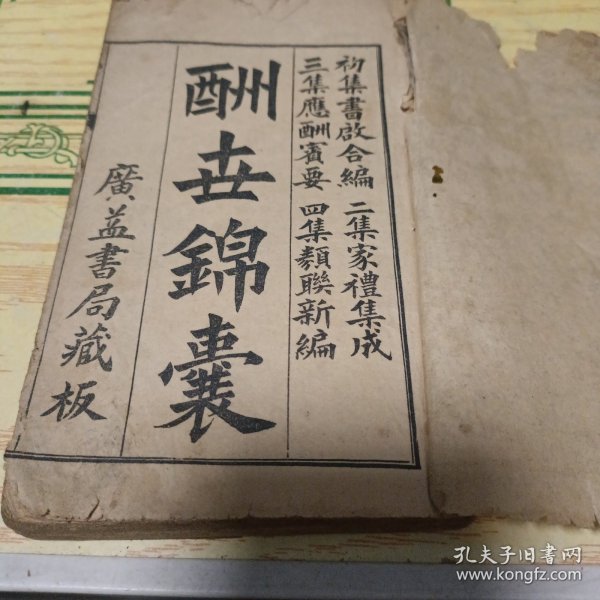 初集書啟合編 二集家禮集成
三集應酬賓要 四集類聯新編
酬世錦囊
廣益書局藏板
孔夫子旧书网
www.kongfz.com